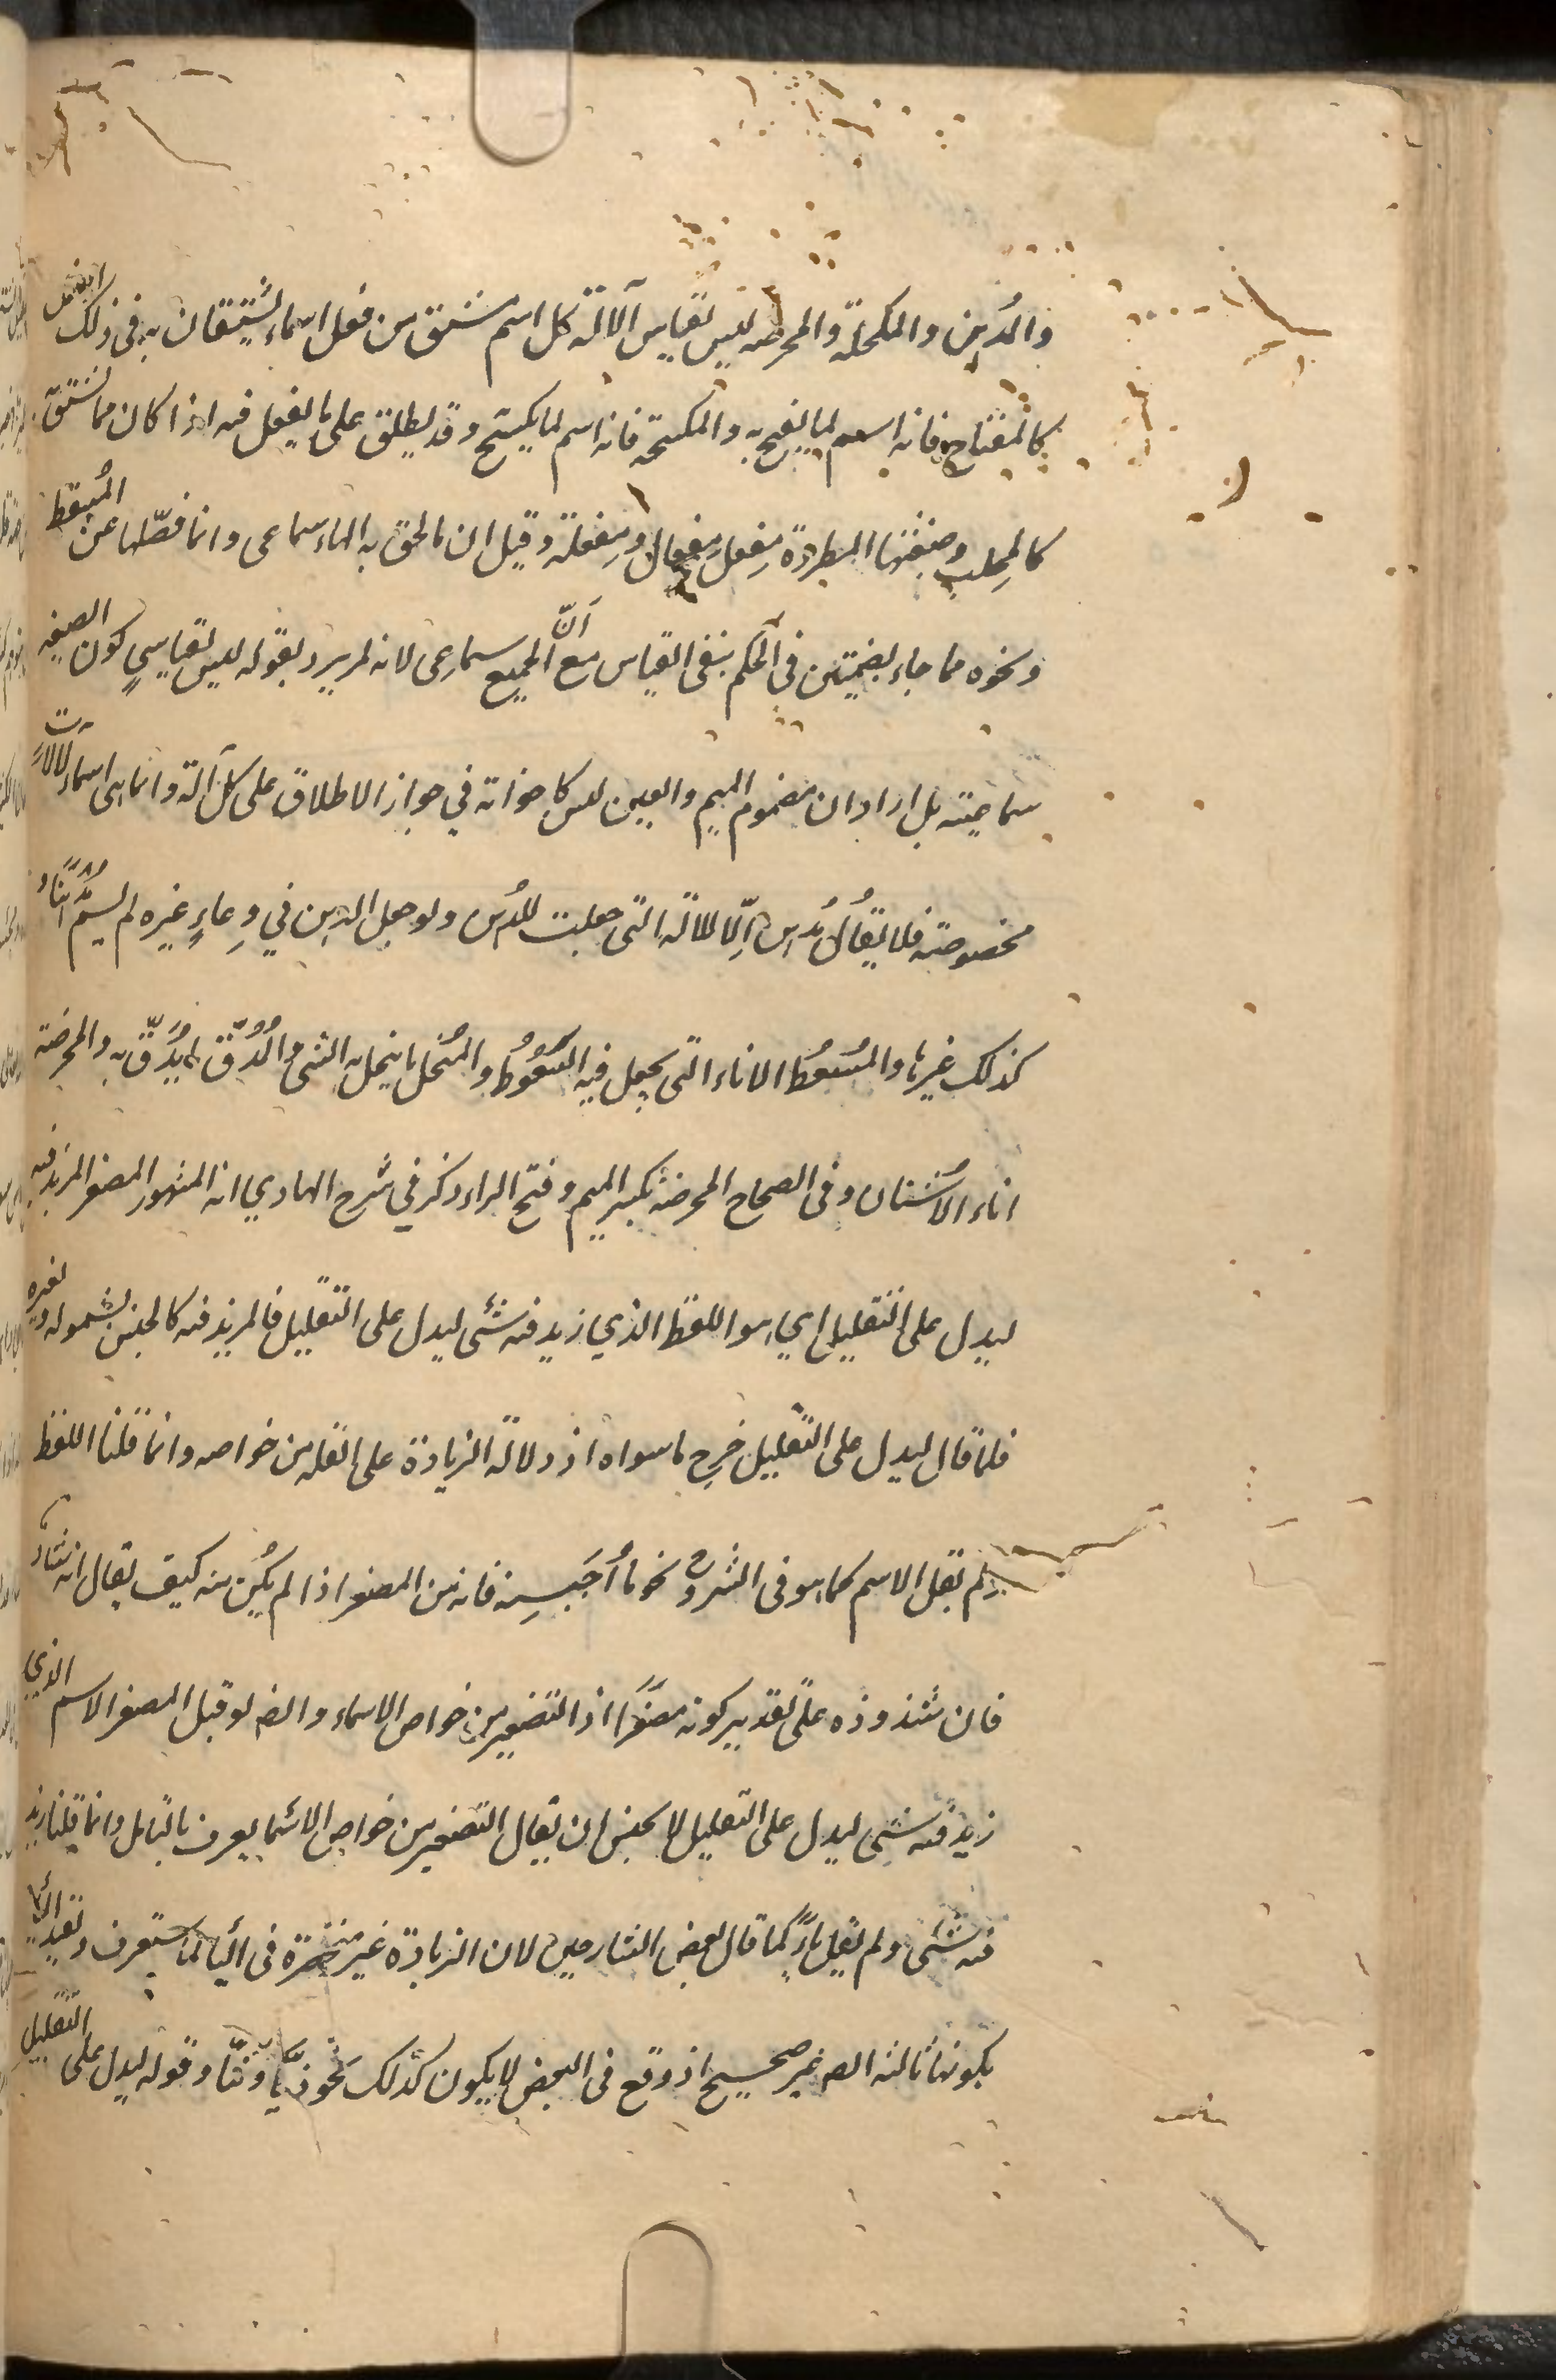 والمُدهن والمكحلة والمحرضه ليس بقياس الآلة كل اسم مشتق من فعل اسماء يستعان به في ذلك الفعل
كالمفتاح فانه اسم لما يفتح به والمكسحة فانه اسم لما يكسح وقد يطلق على ما يفعل فيه اذا كان مما يستق
كالمِحلب وصيغتها المطردة مِفعل مِفعال ومِفعلة وقيل ان ما لحق به الهاء سماعى وانما فصّلها عن المُسعُط
ونحوه مما جاء بضمتين في الحكم بنفى القياس مع أنّ الجميع سماعى لانه لم يرد بقوله ليس بقياسيٍ كون الصيغه
سماعية بل اراد ان مضموم الميم والعين ليس كاخواته في جواز الاطلاق على كل آلة وانما هى اسماء لآلات
مخصوصة فلا يقُالُ مُدهن اِلّا للالة التى جعلت للدُهن ولو جعل الدهن في وِعاءٍ غيره لم يسمَّ
كذلك غيرها والمُسعُط الاناء التى يجعل فيه السَعُوُط والمُنخل ما ينخل به الشى والمُدُقّ ما يُدَقّ به والمحرضة
اناء الاُشنان وفى الصحاح المحرضة بكسر الميم وفتح الراء ذكر في شرح الهادي انه المشهور المصغر المزيد فيه
ليدل على التقليل اي هو اللفظ الذي زيد فيه شئ ليدل على التقليل فالمزيد فيه كالجنس لشموله لغيره
فلما قال ليدل على التقليل خرج ما سواه اذ دلالة الزيادة على القله من خواصه وانما قلنا اللفظ
ولم يقل الاسم كما هو فى الشروح نحو ما أُحَيسِنه فانه من المصغر اذا لم يكُن منه كيف يقال انه شاذّ
فان شذوذه على تقدير كونه مصغّرًا اذ التصغير من خواص الاسماء وايضا لو قيل المصغر الاسم الذي
زيد فيه شئ ليدل على التقليل لا يحسن ان يقال التصغير من خواص الاسما يعرف بالتامل وانما قلنا زيد
فيه شئ ولم يقل ياءً كما قال بعض الشارحين لان الزيادة غير منحصرة فى اليا لما ستعرف وتقييد اليا
بكونها ثالثة ايضا غير صحيح اذ وقع فى البعض لا يكون كذلك نحو ذيّا وتيّا وقوله ليدل على التقليل